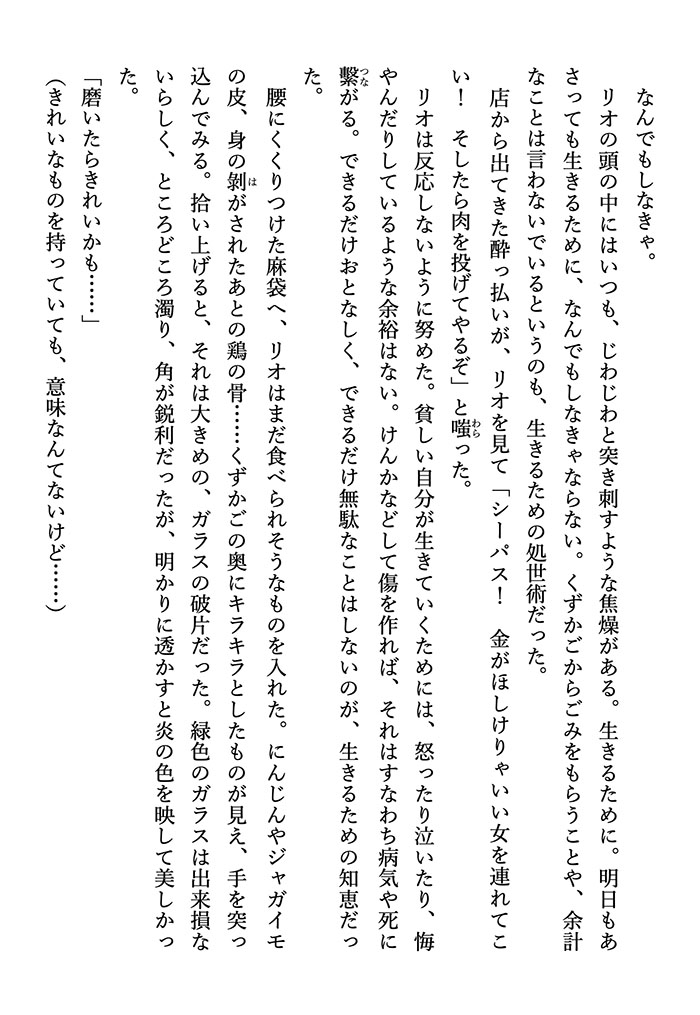 なんでもしなきゃ。
　リオの頭の中にはいつも、じわじわと突き刺すような焦燥がある。生きるために。明日もあ
さっても生きるために、なんでもしなきゃならない。くずかごからごみをもらうことや、余計
なことは言わないでいるというのも、生きるための処世術だった。
　店から出てきた酔っ払いが、リオを見て「シーパス！　金がほしけりゃいい女を連れてこ
い！　そしたら肉を投げてやるぞ」と嗤った。
　リオは反応しないように努めた。貧しい自分が生きていくためには、怒ったり泣いたり、悔
やんだりしているような余裕はない。けんかなどして傷を作れば、それはすなわち病気や死に
繫がる。できるだけおとなしく、できるだけ無駄なことはしないのが、生きるための知恵だっ
た。
　腰にくくりつけた麻袋へ、リオはまだ食べられそうなものを入れた。にんじんやジャガイモ
の皮、身の剝がされたあとの鶏の骨……くずかごの奥にキラキラとしたものが見え、手を突っ
込んでみる。拾い上げると、それは大きめの、ガラスの破片だった。緑色のガラスは出来損な
いらしく、ところどころ濁り、角が鋭利だったが、明かりに透かすと炎の色を映して美しかっ
た。
「磨いたらきれいかも……」
（きれいなものを持っていても、意味なんてないけど……）